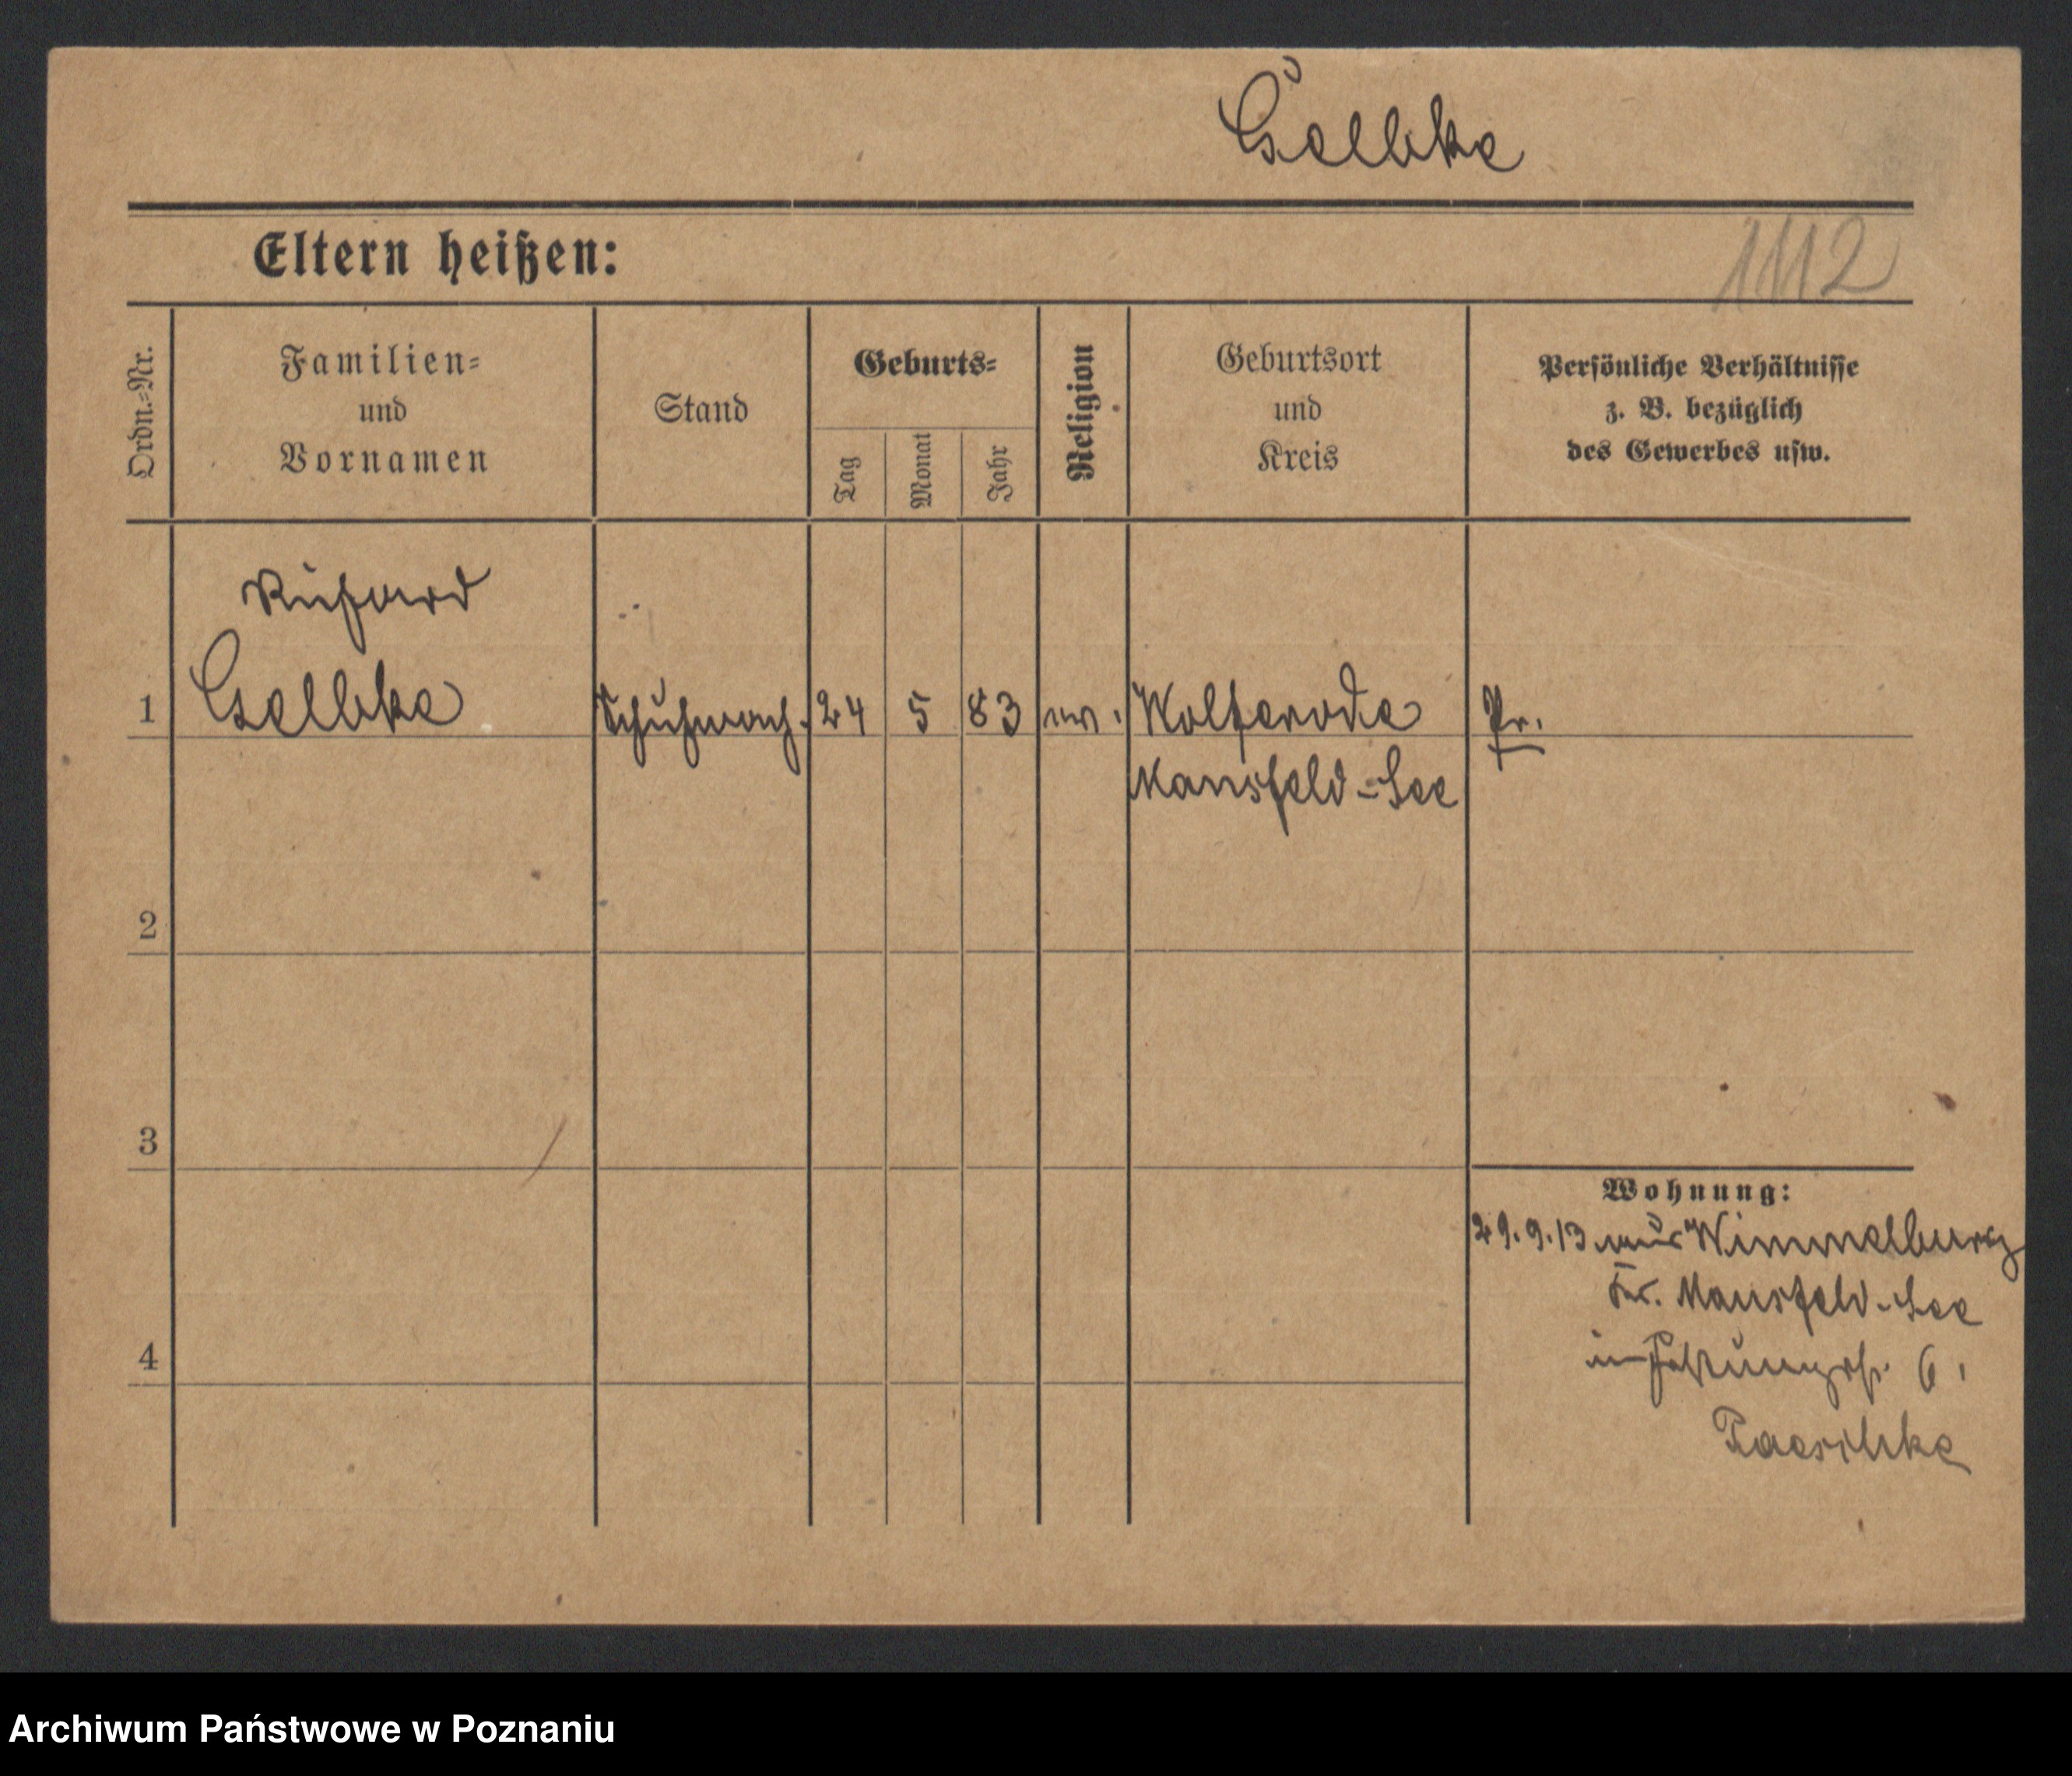 Gselbke
Eltern heißen:
1112
Ordn.-Nr.
Familien-
und
Vornamen
Stand
Geburts-
Tag
Monat
Jahr
Religion
Geburtsort
und
Kreis
Persönliche Verhältnisse
z. B. bezüglich
des Gewerbes usw.
Richard
1 Gselbke Schuhmach. 24 5 83 ev. Wolferode Pr.
Mansfeld-See
2
3
Wohnung:
29.9.13 aus Wimmelburg
Kr. Mansfeld-See
4
6,
Paeschke
Archiwum Państwowe w Poznaniu